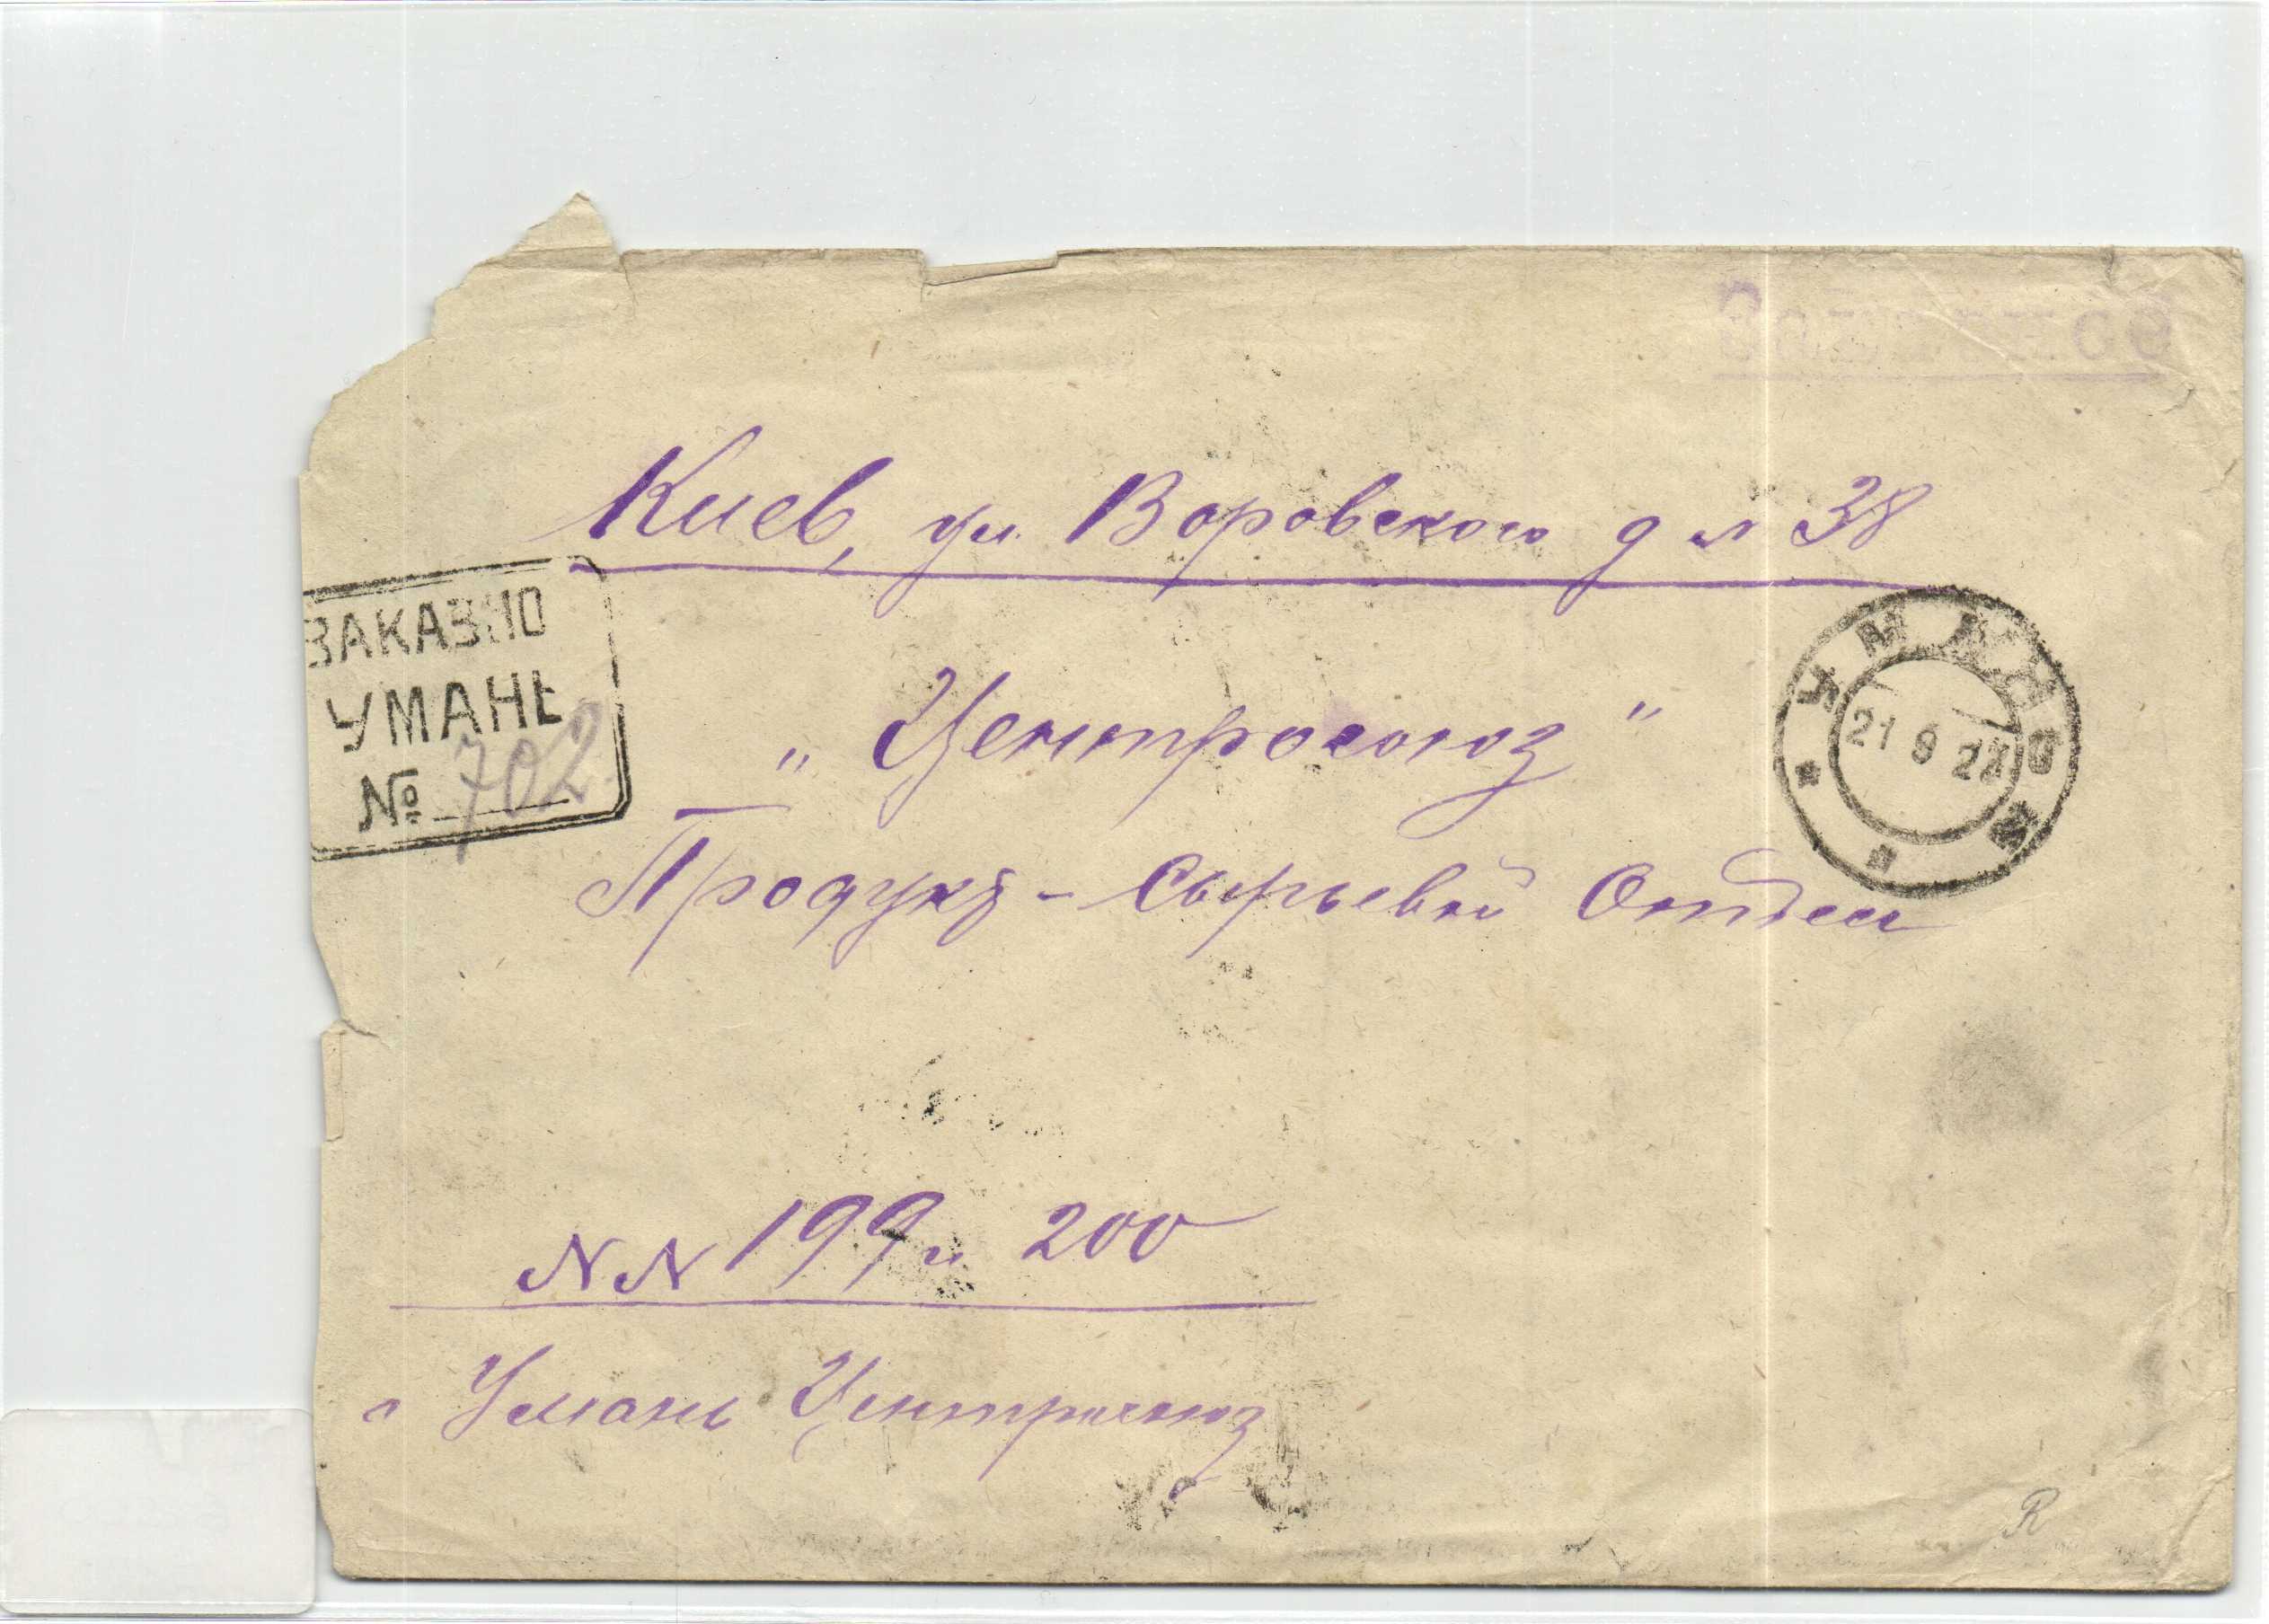 Киев, ул. Воровского д № 38
ЗАКАЗНО
УМАНЬ
№ 702
„Центросоюз"
21 9 2
Продукт-Сырьевой Отдел
NN 199 и 200
г Умань Центросоюз
R